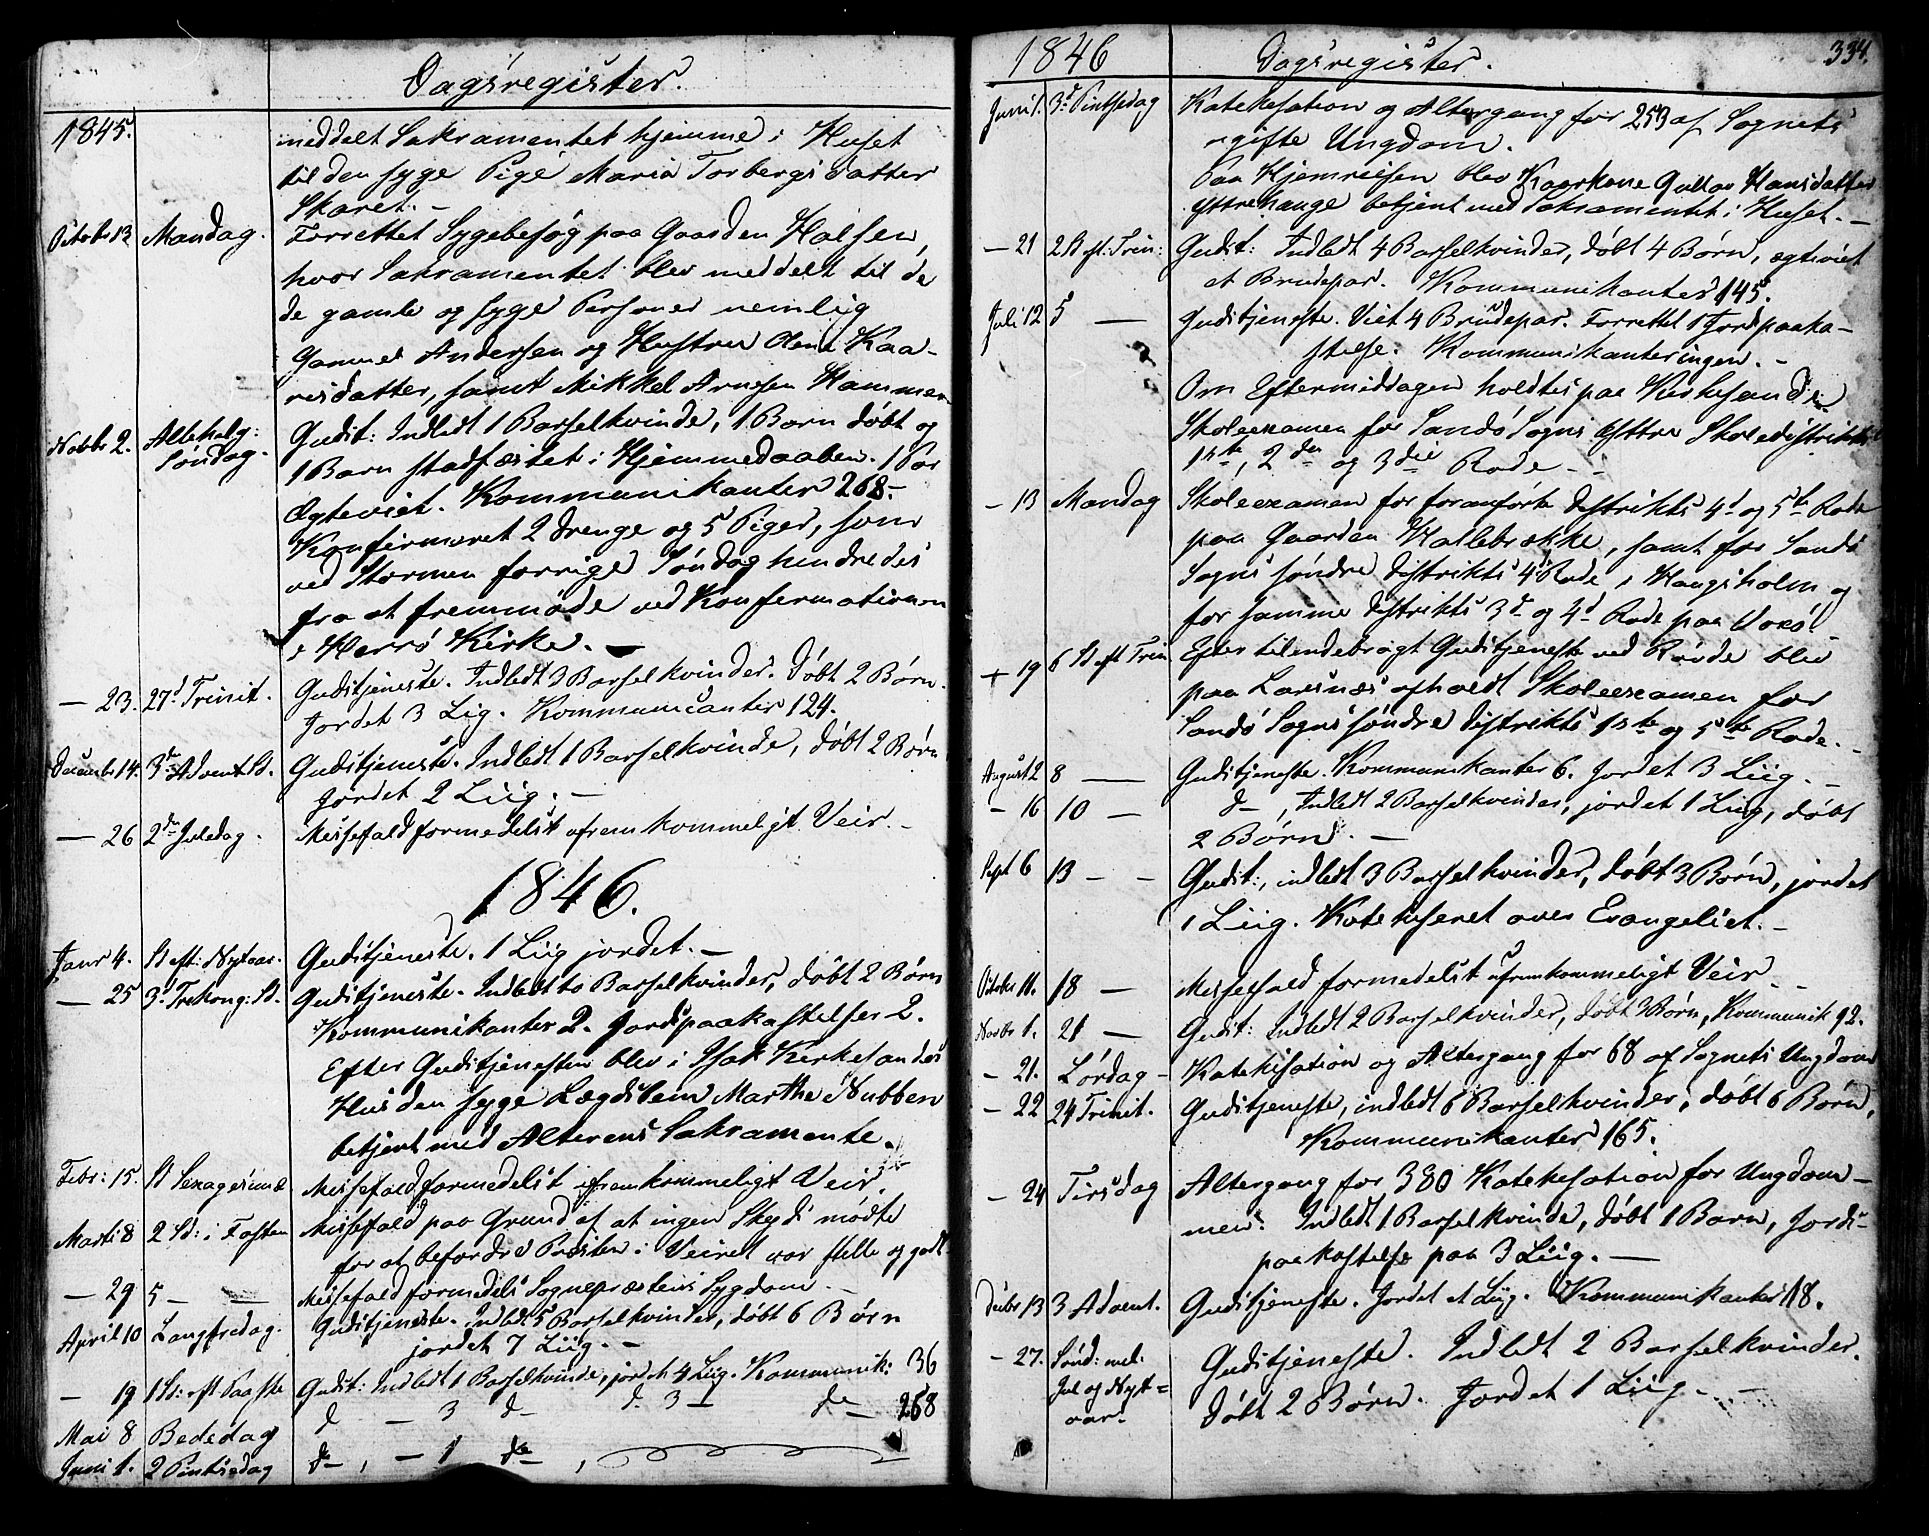 Dagsregister.
1845.
meddelt Sakramentet hjemme i Huset
til den syge Pige Maria Torbergsdatter
Skaret. –
Octobr 12 Mandag. Forrettet Sygebesøg paa Gaarden Halsen,
hvor Sakramentet blev meddelt til de
de gamle og syge Personer nemlig
Gammel Andersen og Hustru Olene Kaa-
risdatter, samt Mikkel Arnesen Hammer
Novbr 2. Allehelg: Søndag. Gudst: Indledt 1 Barselkvinde, 1 Barn døbt og
1 Barn stadfæstet i Hjemmedaaben. 1 Par
Ægteviet. Kommunikanter 268.–
Konfirmeret 2 Drenge og 5 Piger, som
ved Stormen forrige Søndag hindredes
fra at fremmøde ved Konfirmationen
i Herrø Kirke. –
– 23. 27d Trinit. Gudstjeneste. Indledt 3 Barselkvinder. Døbt 2 Børn.
Jordet 3 Lig. Kommunicanter 124.
Decembr 14. 3de Advent S. Gudstjeneste. Indledt 1 Barselkvinde, døbt 2 Børn
Jordet 2 Liig. –
– 26 2den Juledag. Messefald formedelst ufremkommeligt Veir. –
1846.
Janr 4. S. eft: Nytaar. Gudstjeneste. 1 Liig jordet. –
– 25 3d Trekong: S. Gudstjeneste. Indledt to Barselkvinder, døbt 2 Børn
Kommunikanter 2. Jordspaakastelser 2.
Efter Gudstjenesten blev i Isak Kirkesandes
Hus den syge Lægdslem Marthe Nubben
betjent med Alterens Sakramente.
Febr: 15. S Sexagesimæ Messefald formedelst ufremkommeligt Veir.
Marti 8 2 Sd: i Fasten Messefald paa Grund af at ingen Skyds mødte
for at befordre Præsten i Veiret var stille og godt
– 29 5 – – Messefald formedels Sognepræstens Sygdom –
April 10 Langfredag. Gudstjeneste. Indledt 5 Barselkvinder, døbt 6 Børn
jordet 7 Liig. –
– 19 1 Sd: eft Paaske Gudst: Indledt 1 Barselkvinde, jordet 4 Liig. Kommunik: 36
Mai 8 Bededag d – 3 d– d. 3 – do– 268
Juni 1. 2 Pintsedag do–, – 1 do–,
1846 Dagsregister. 334.
Juni 1. 3d Pintsedag Katekesation og Altergang for 253 af Sognets
ugifte Ungdom.
Paa Hjemreisen blev Kaarkone Gullov Hansdatter
Yttrehauge betjent med Sakramentet i Huset. –
– 21 2 S eft. Trin: Gudst: Indledt 4 Barselkvinder, døbt 4 Børn, ægteviet
et Brudepar. Kommunikanter 145.
Juli 12 5 – Gudstjeneste. Viet 4 Brudepar. Forrettet 1 Jordpaaka-
stelse. Kommunikanter ingen. –
Om Eftermiddagen holdtes paa Kirkesande
Skoleexamen for Sandø Sogns Yttre Skoledistrikts
1ste, 2den og 3die Rode –
– 13 Mandag Skoleexamen for foranførte Distrikts 4d og 5te Rode
paa Gaarden Hallebrække, samt for Sandø
Sogns søndre Distrikts 4d Rode, i Haugsholm og
for samme Distrikts 3d og 4d Rode paa Voxø.
+ 19 6 S eft Trin Efter tilendebragt Gudstjeneste ved Røvde blev
paa Larsnæs afholdt Skoleexamen for
Sandø Sogns søndre Distrikts 1ste og 5te Rode. –
August 2 8 – Gudstjeneste. Kommunikanter 6. Jordet 3 Liig. –
– 16 10 – d–, Indledt 2 Barselkvinder, jordet 1 Liig, døbt
2 Børn. –
Sept 6 13 – – Gudst:, indledt 3 Barselkvinder, døbt 3 Børn, jordet
1 Liig. Katekiseret over Evangeliet. –
Octobr 11. 18 – Messefald formedelst ufremkommeligt Veir. –
Novbr 1. 21 – Gudst: Indledt 2 Barselkvinder, døbt 3 Børn, Kommunik 92.
– 21. Lørdag – Katekisation og Altergang for 68 af Sognets Ungdom
– 22 24 Trinit. Gudstjeneste, indledt 6 Barselkvinder, døbt 6 Børn,
Kommunikanter 165.
– 24 Tirsdag Altergang for 380 Katekesation for Ungdom-
men: Indledt 1 Barselkvinde, døbt 1 Barn, Jords-
paakastelse paa 3 Liig. –
Decbr 13 3 Advent. Gudstjeneste. Jordet et Liig. Kommunikanter 18.
– 27. Sønd: mel: Gudstjeneste. Indledt 2 Barselkvinder.
Jul og Nyt= Døbt 2 Børn. Jordet 1 Liig. –
aar.